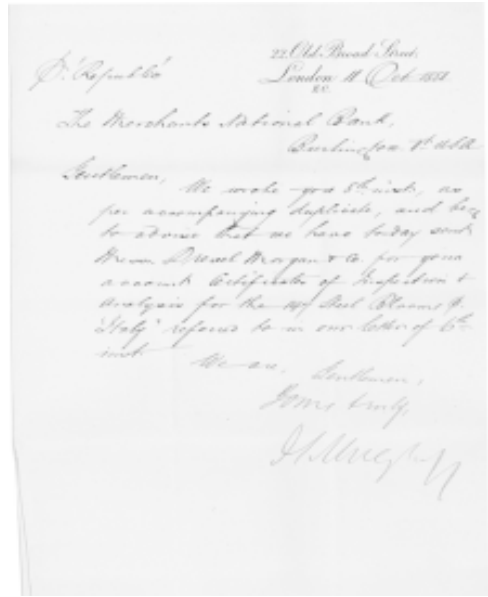 22, Old Broad Street,
London 11 Oct 1881
E.C.
"Republic"
The Merchants National Bank,
Burlington Vt U.S.A.
Gentlemen,
We wrote you 8th inst, as
per accompanying duplicate, and beg
to advise that we have today sent
Messrs Drexel Morgan & Co for your
account Certificates of Inspection &
Analysis for the Steel Blooms
"Italy" referred to in our letter of 6th
inst.
We are, Gentlemen,
Yours truly,